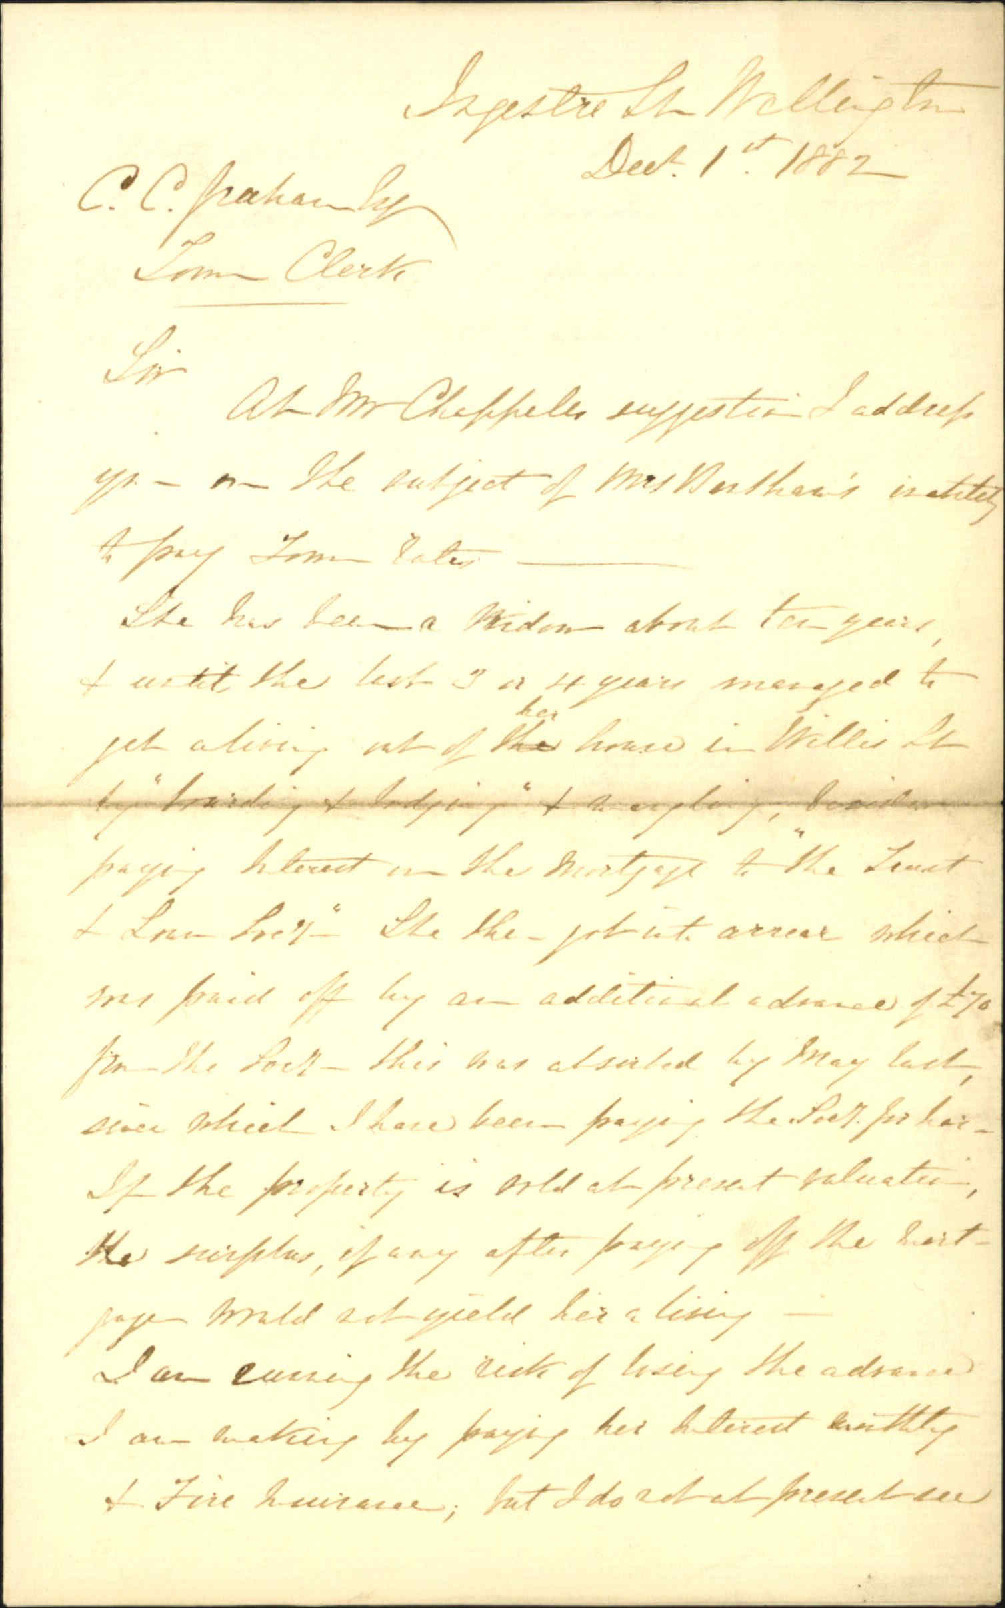 Ingestre St Wellington
Dect. 1st. 1882
C. C. Graham Esq
Town Clerk
Sir
At Mr Chapples suggestion I address
you on the subject of Mrs inability
to pay Town Rates
She has been a Widow about ten years,
& until the last 3 or 4 years managed to
get a living out of the her house in Willis St
by "boarding & lodging" & mangling, besides
paying Interest on the Mortgage to "the Trust
& Loan Socy" She then got into arrear which
was paid off by an additional advance of £70
from the Socy this was absorbed by May last,
since which I have been paying the Socy. for her
If the property is sold at present valuation,
the surplus, if any after paying off the mort-
gage would not yield her a living
I am running the risk of losing the advance
I am making by paying her Interest monthly
& Fire Insurance; but I do not at present see